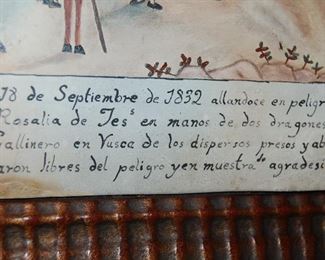 18 de Septiembre de 1832 allandoce en peligr
Rosalia de Jesˢ en manos de dos dragones
Gallinero en Vusca de los dispersos presos y ab
aron libres del peligro y en muestra de agradesi